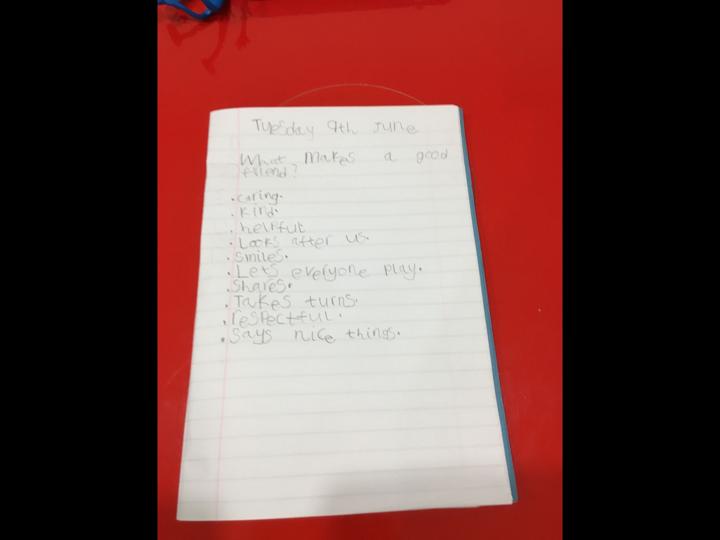 Tuesday 9th June
What makes a good
friend?
. caring.
. kind.
. helpful
. Looks after us.
. smiles.
. Lets everyone play.
. Shares.
. Takes turns.
. respectful.
. Says nice things.